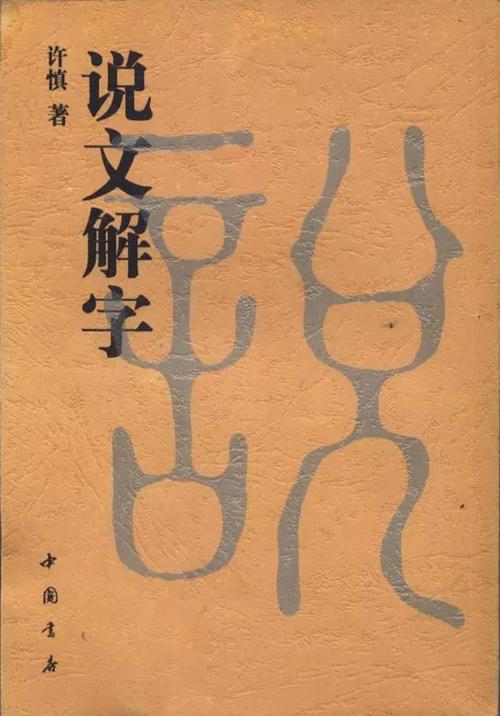 说文解字
许慎 著
說
中國書店